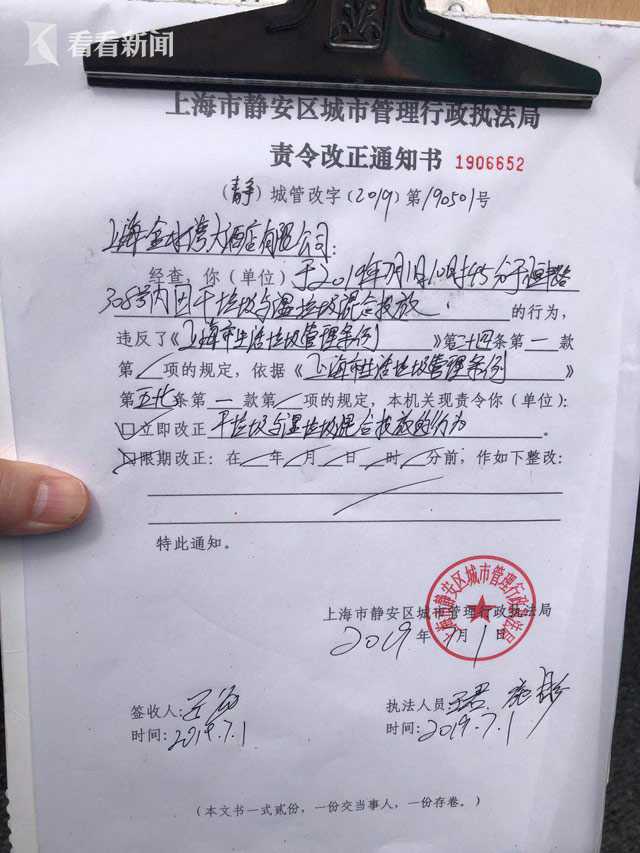 看看新闻
上海市静安区城市管理行政执法局
责令改正通知书 1906652
（静）城管改字（2019）第190501号
上海金水湾大酒店有限公司：
经查，你（单位）于2019年7月1日10时45分于恒丰路
308号内因干垃圾与湿垃圾混合投放 的行为，
违反了《上海市生活垃圾管理条例》第二十四条第一款
第／项的规定，依据《上海市生活垃圾管理条例》
第五十七条第一款第／项的规定，本机关现责令你（单位）：
☑立即改正 干垃圾与湿垃圾混合投放的行为。
□限期改正：在／年／月／日／时／分前，作如下整改：
特此通知。
上海市静安区城市管理行政执法局
上海市静安区城市管理行政执法局
2019年7月1日
签收人：
执法人员：
时间：2019.7.1
时间：2019.7.1
（本文书一式贰份，一份交当事人，一份存卷。）